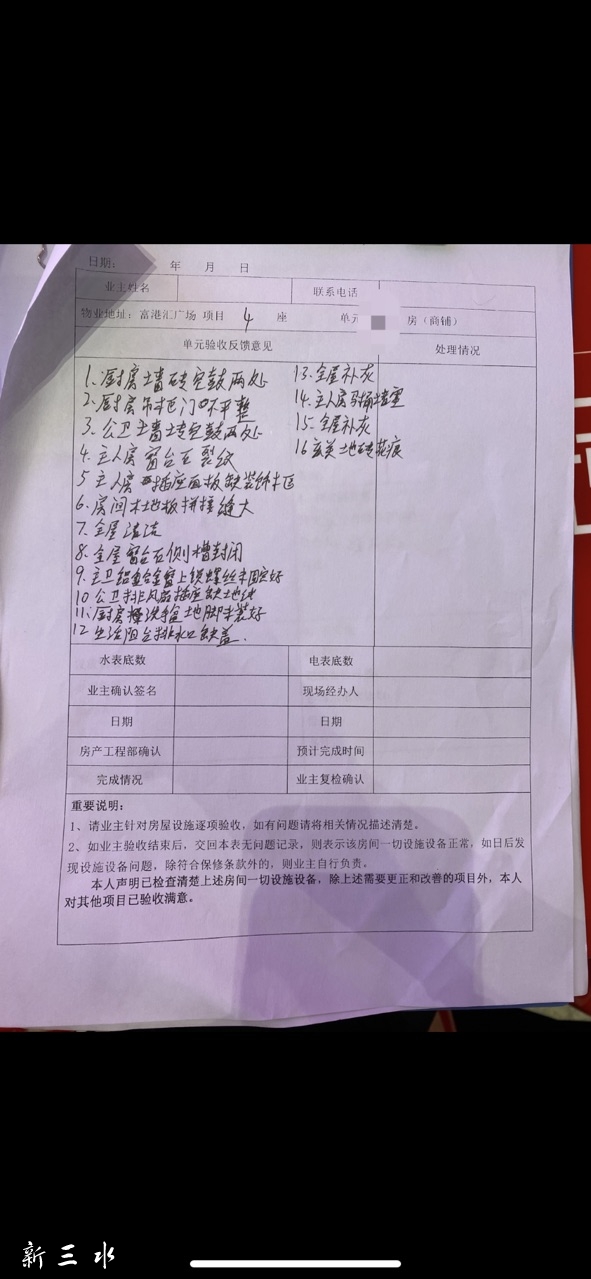 日期： 年 月 日
业主姓名 联系电话
物业地址：富港汇广场 项目 4 座 单元 房（商铺）
单元验收反馈意见 处理情况
1.厨房墙砖空鼓两处
2.厨房吊柜门口不平整
3.公卫主墙砖空鼓两处
4.主人房窗台石裂纹
5 主人房 插座面板缺装饰卡
6.房间木地板拼接缝大
7.全屋清洁
8.全屋窗台石侧槽封闭
9.主卫铝合金窗上锁螺丝未固定好
10 公卫排风扇插座缺地线
11.厨房 洗 盆地脚未装好
12 生活阳台排水口缺盖.
13.全屋补灰
14.主人房马桶堵塞
15.全屋补灰
16 玄关地砖花痕
水表底数 电表底数
业主确认签名 现场经办人
日期 日期
房产工程部确认 预计完成时间
完成情况 业主复检确认
重要说明：
1、请业主针对房屋设施逐项验收，如有问题请将相关情况描述清楚。
2、如业主验收结束后，交回本表无问题记录，则表示该房间一切设施设备正常，如日后发
现设施设备问题，除符合保修条款外的，则业主自行负责。
本人声明已检查清楚上述房间一切设施设备，除上述需要更正和改善的项目外，本人
对其他项目已验收满意。
新三水